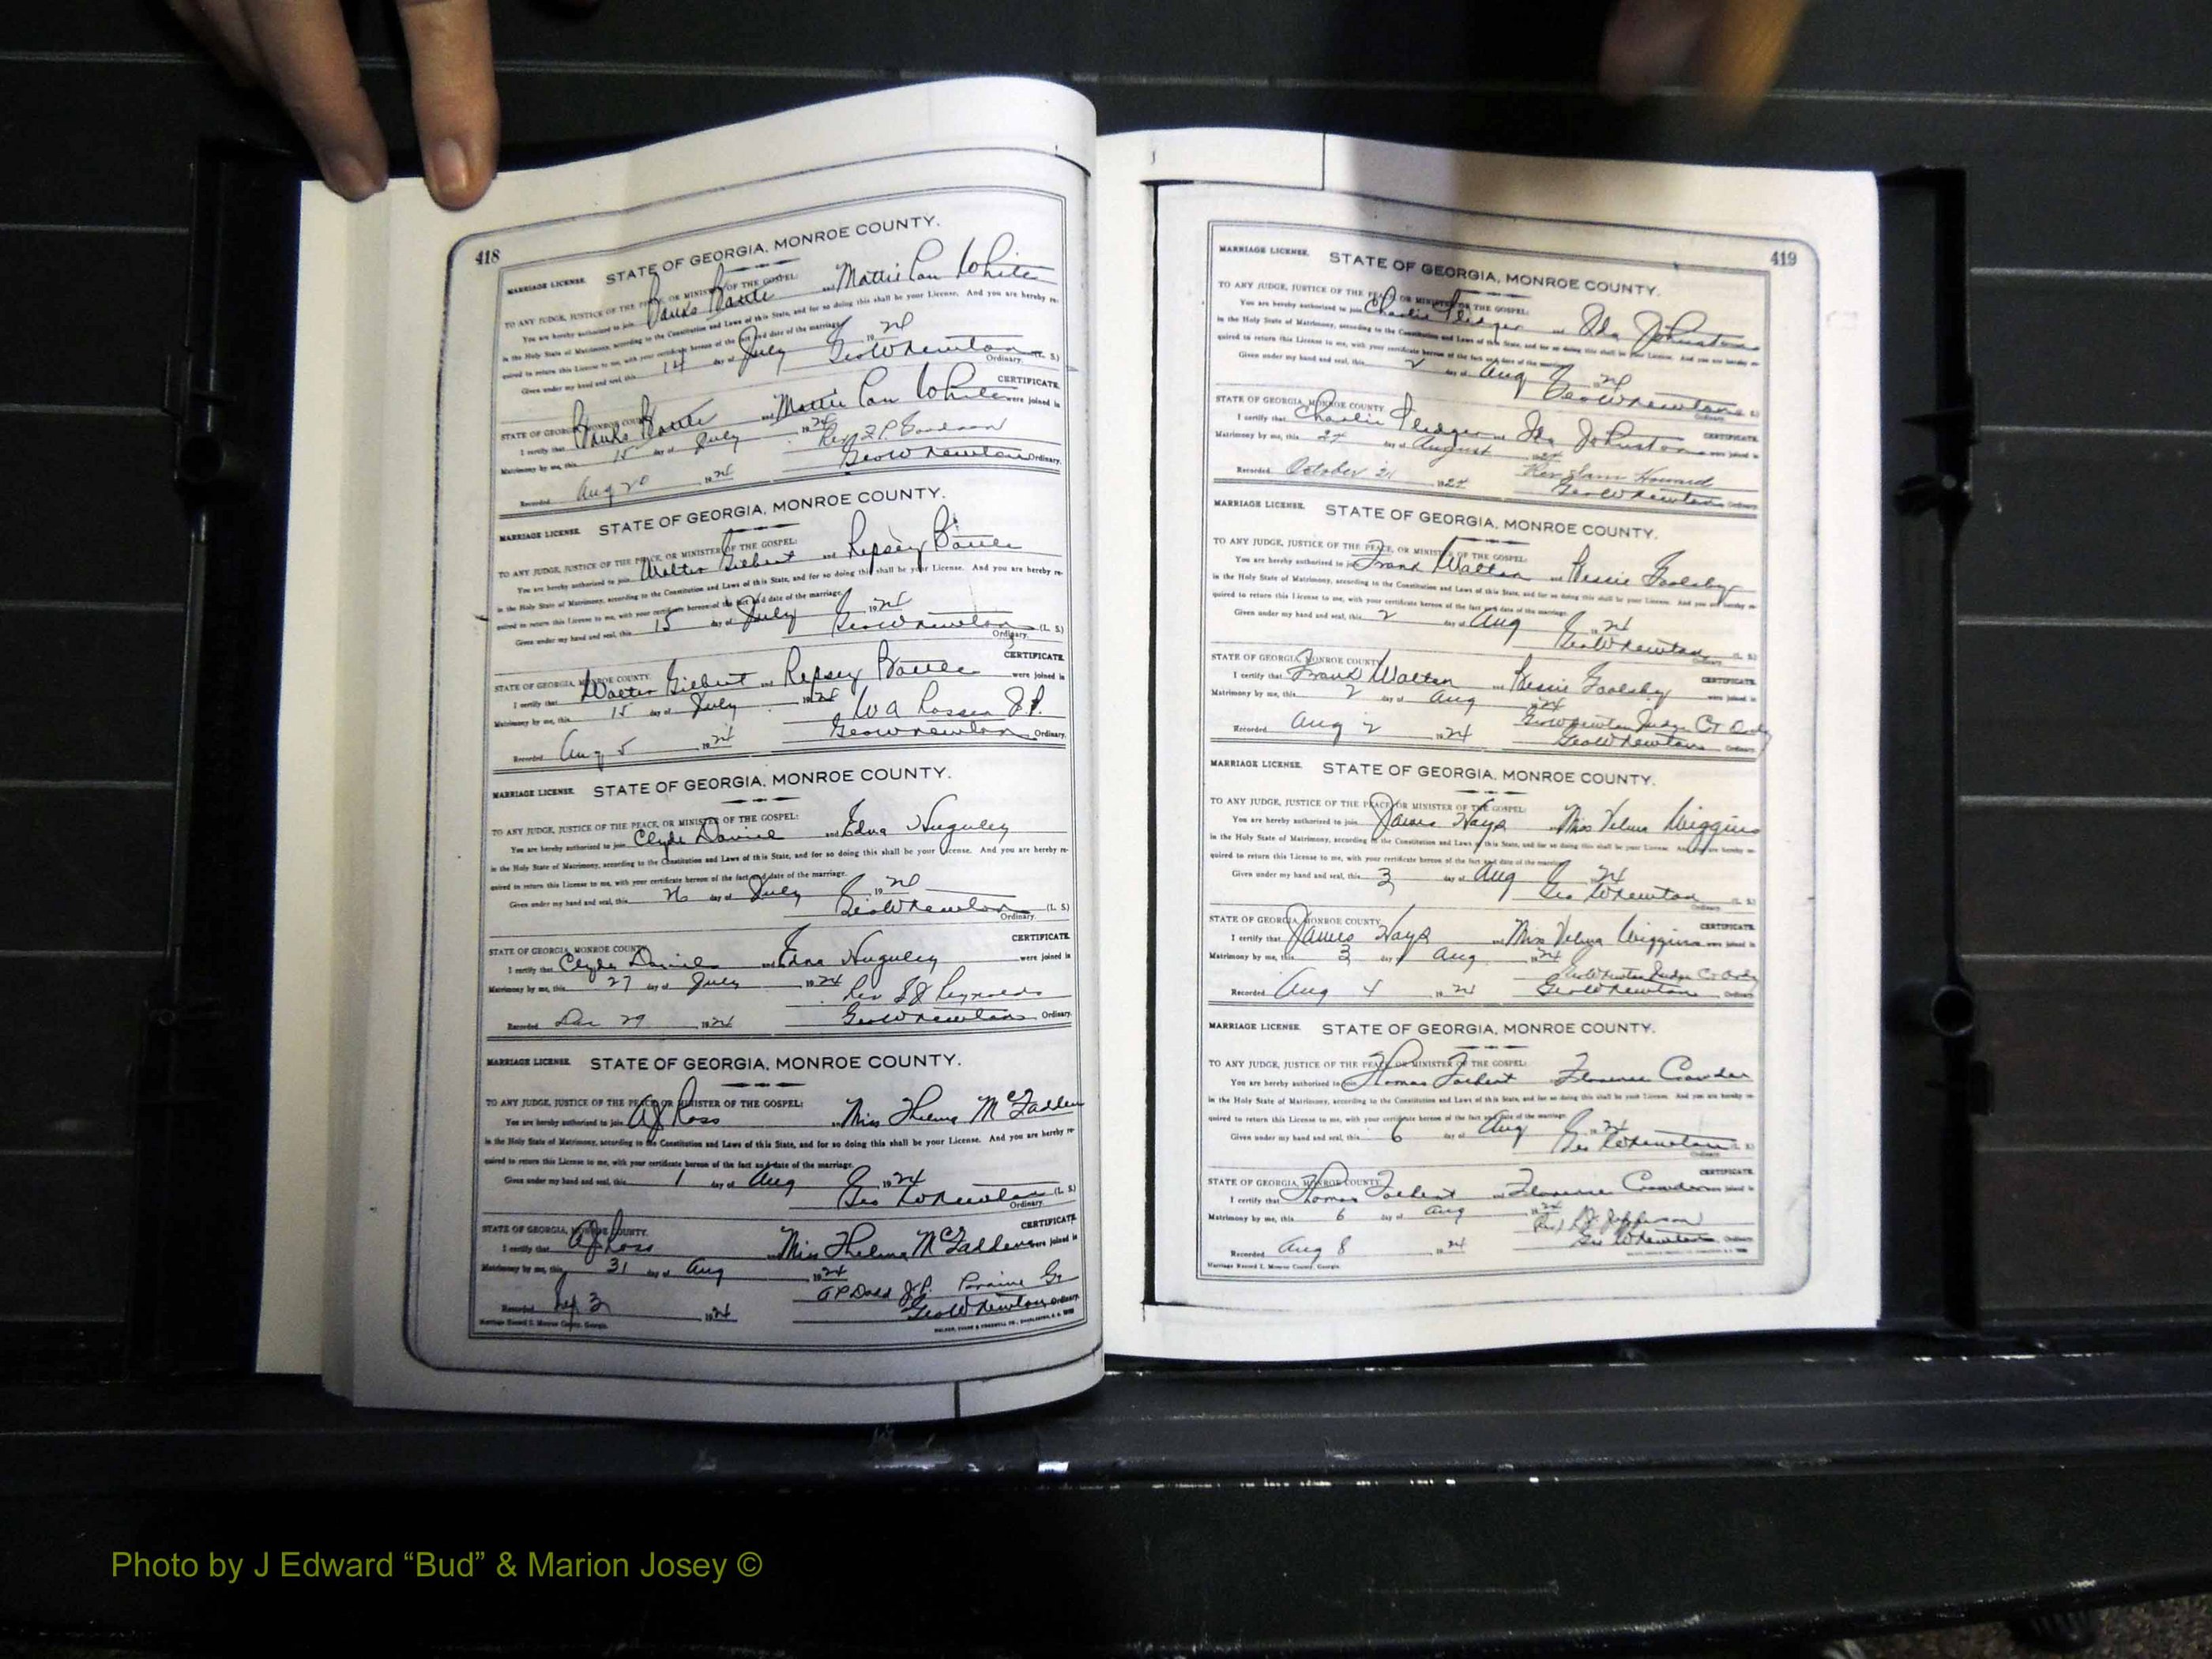 418
MARRIAGE LICENSE. STATE OF GEORGIA, MONROE COUNTY.
TO ANY JUDGE, JUSTICE OF THE PEACE, OR MINISTER OF THE GOSPEL:
You are hereby authorized to join Banks and Mattie Lou White
in the Holy State of Matrimony, according to the Constitution and Laws of this State, and for so doing this shall be your License. And you are hereby re-
quired to return this License to me, with your certificate hereon of the fact and date of the marriage.
Given under my hand and seal, this 14 day of July 1924
Geo W Newton (L. S.)
Ordinary.
CERTIFICATE.
STATE OF GEORGIA, MONROE COUNTY.
I certify that Banks and Mattie Lou White were joined in
Matrimony by me, this 15 day of July 1924
Rev F.P.
Recorded Aug 20 1924 Geo W Newton Ordinary.
MARRIAGE LICENSE. STATE OF GEORGIA, MONROE COUNTY.
TO ANY JUDGE, JUSTICE OF THE PEACE, OR MINISTER OF THE GOSPEL:
You are hereby authorized to join Walter Gilbert and Repsey
in the Holy State of Matrimony, according to the Constitution and Laws of this State, and for so doing this shall be your License. And you are hereby re-
quired to return this License to me, with your certificate hereon of the fact and date of the marriage.
Given under my hand and seal, this 15 day of July 1924
Geo W Newton (L. S.)
Ordinary.
CERTIFICATE.
STATE OF GEORGIA, MONROE COUNTY.
I certify that Walter Gilbert and Repsey were joined in
Matrimony by me, this 15 day of July 1924
W A J.P.
Recorded Aug 5 1924 Geo W Newton Ordinary.
MARRIAGE LICENSE. STATE OF GEORGIA, MONROE COUNTY.
TO ANY JUDGE, JUSTICE OF THE PEACE, OR MINISTER OF THE GOSPEL:
You are hereby authorized to join Clyde Daniel and Edna Huguley
in the Holy State of Matrimony, according to the Constitution and Laws of this State, and for so doing this shall be your License. And you are hereby re-
quired to return this License to me, with your certificate hereon of the fact and date of the marriage.
Given under my hand and seal, this 26 day of July 1924
Geo W Newton (L. S.)
Ordinary.
CERTIFICATE.
STATE OF GEORGIA, MONROE COUNTY.
I certify that Clyde Daniel and Edna Huguley were joined in
Matrimony by me, this 27 day of July 1924
Rev Reynolds
Recorded Dec 29 1924 Geo W Newton Ordinary.
MARRIAGE LICENSE. STATE OF GEORGIA, MONROE COUNTY.
TO ANY JUDGE, JUSTICE OF THE PEACE, OR MINISTER OF THE GOSPEL:
You are hereby authorized to join A J Ross and Miss Thelma McFadden
in the Holy State of Matrimony, according to the Constitution and Laws of this State, and for so doing this shall be your License. And you are hereby re-
quired to return this License to me, with your certificate hereon of the fact and date of the marriage.
Given under my hand and seal, this 1 day of Aug 1924
Geo W Newton (L. S.)
Ordinary.
CERTIFICATE.
STATE OF GEORGIA, MONROE COUNTY.
I certify that A J Ross and Miss Thelma McFadden were joined in
Matrimony by me, this 31 day of Aug 1924
J.P.
Recorded Sep 3 1924 Geo W Newton Ordinary.
Marriage Record L Monroe County, Georgia.
419
MARRIAGE LICENSE. STATE OF GEORGIA, MONROE COUNTY.
TO ANY JUDGE, JUSTICE OF THE PEACE, OR MINISTER OF THE GOSPEL:
You are hereby authorized to join Charlie Pledger and Ida Johnston
in the Holy State of Matrimony, according to the Constitution and Laws of this State, and for so doing this shall be your License. And you are hereby re-
quired to return this License to me, with your certificate hereon of the fact and date of the marriage.
Given under my hand and seal, this 2 day of Aug 1924
Geo W Newton (L. S.)
Ordinary.
CERTIFICATE.
STATE OF GEORGIA, MONROE COUNTY.
I certify that Charlie Pledger and Ida Johnston were joined in
Matrimony by me, this day of August 1924
Rev Sam Howard
Recorded October 21 1924 Geo W Newton Ordinary.
MARRIAGE LICENSE. STATE OF GEORGIA, MONROE COUNTY.
TO ANY JUDGE, JUSTICE OF THE PEACE, OR MINISTER OF THE GOSPEL:
You are hereby authorized to join Frank Walton and Bessie Goolsby
in the Holy State of Matrimony, according to the Constitution and Laws of this State, and for so doing this shall be your License. And you are hereby re-
quired to return this License to me, with your certificate hereon of the fact and date of the marriage.
Given under my hand and seal, this 2 day of Aug 1924
Geo W Newton (L. S.)
Ordinary.
CERTIFICATE.
STATE OF GEORGIA, MONROE COUNTY.
I certify that Frank Walton and Bessie Goolsby were joined in
Matrimony by me, this 2 day of Aug 1924
Geo W Newton Judge Ct Ordy
Recorded Aug 2 1924 Geo W Newton Ordinary.
MARRIAGE LICENSE. STATE OF GEORGIA, MONROE COUNTY.
TO ANY JUDGE, JUSTICE OF THE PEACE, OR MINISTER OF THE GOSPEL:
You are hereby authorized to join James Hays and Miss Velma Wiggins
in the Holy State of Matrimony, according to the Constitution and Laws of this State, and for so doing this shall be your License. And you are hereby re-
quired to return this License to me, with your certificate hereon of the fact and date of the marriage.
Given under my hand and seal, this 3 day of Aug 1924
Geo W Newton (L. S.)
Ordinary.
CERTIFICATE.
STATE OF GEORGIA, MONROE COUNTY.
I certify that James Hays and Miss Velma Wiggins were joined in
Matrimony by me, this 3 day of Aug 1924
Geo W Newton Judge Ct Ordy
Recorded Aug 4 1924 Geo W Newton Ordinary.
MARRIAGE LICENSE. STATE OF GEORGIA, MONROE COUNTY.
TO ANY JUDGE, JUSTICE OF THE PEACE, OR MINISTER OF THE GOSPEL:
You are hereby authorized to join Thomas Torbert Florence Crowder
in the Holy State of Matrimony, according to the Constitution and Laws of this State, and for so doing this shall be your License. And you are hereby re-
quired to return this License to me, with your certificate hereon of the fact and date of the marriage.
Given under my hand and seal, this 6 day of Aug 1924
Geo W Newton (L. S.)
CERTIFICATE.
STATE OF GEORGIA, MONROE COUNTY.
I certify that Thomas Torbert and Florence Crowder were joined in
Matrimony by me, this 6 day of Aug 1924
Rev Jefferson
Recorded Aug 8 1924 Geo W Newton Ordinary.
Marriage Record L Monroe County, Georgia.
Photo by J Edward “Bud” & Marion Josey ©